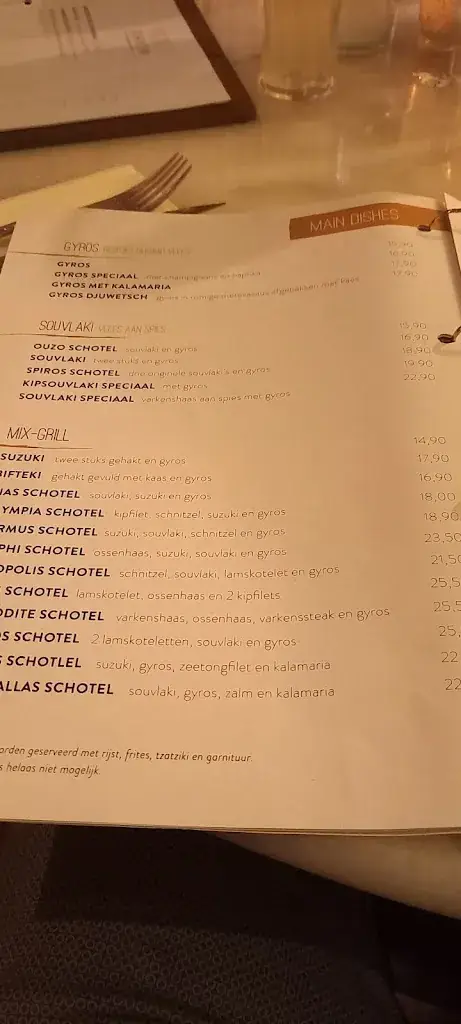 MAIN DISHES
GYROS
GYROS 15,90
GYROS SPECIAAL met champignons en paprika 16,90
GYROS MET KALAMARIA 17,90
GYROS DJUWETSCH gyros in tomatensaus afgebakken met kaas 17,90
SOUVLAKI VLEES AAN SPIES
OUZO SCHOTEL souvlaki en gyros 15,90
SOUVLAKI twee stuks en gyros 16,90
SPIROS SCHOTEL drie originele souvlaki's en gyros 18,90
KIPSOUVLAKI SPECIAAL met gyros 19,90
SOUVLAKI SPECIAAL varkenshaas aan spies met gyros 22,90
MIX-GRILL
SUZUKI twee stuks gehakt en gyros 14,90
BIFTEKI gehakt gevuld met kaas en gyros 17,90
IAS SCHOTEL souvlaki, suzuki en gyros 16,90
YMPIA SCHOTEL kipfilet, schnitzel, suzuki en gyros 18,00
RMUS SCHOTEL suzuki, souvlaki, schnitzel en gyros 18,90
PHI SCHOTEL ossenhaas, suzuki, souvlaki en gyros 23,50
OPOLIS SCHOTEL schnitzel, souvlaki, lamskotelet en gyros 21,50
SCHOTEL lamskotelet, ossenhaas en 2 kipfilets 25,5
ODITE SCHOTEL varkenshaas, ossenhaas, varkenssteak en gyros 25,5
OS SCHOTEL 2 lamskoteletten, souvlaki en gyros 25,
S SCHOTLEL suzuki, gyros, zeetongfilet en kalamaria 22
ALLAS SCHOTEL souvlaki, gyros, zalm en kalamaria 22
orden geserveerd met rijst, frites, tzatziki en garnituur.
s helaas niet mogelijk.